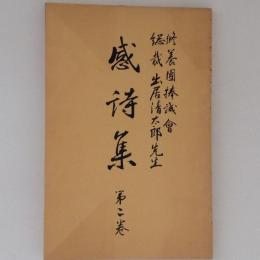 修養團捧誠會
総裁 出居清太郎先生
感詩集
第二巻